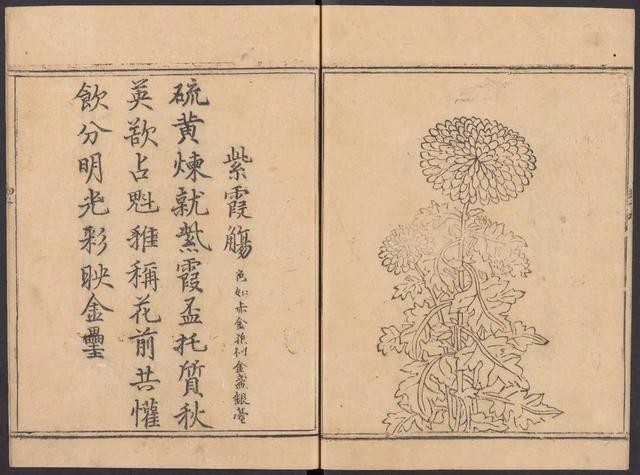 紫霞觴
色如赤金金盞銀臺
硫黄煉就紫霞盃托質秋
英欲占魁雅稱花前共懽
飲分明光彩映金罍